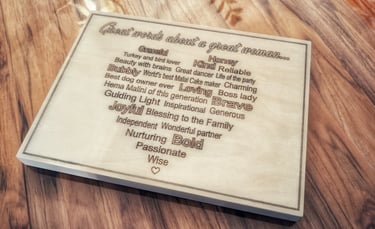 Great words about a great woman...
Graceful Honey
Turkey and bird lover Kind Reliable
Beauty with brains Great dancer Life of the party
Bubbly World's best Matai Cake maker Charming
Best dog owner ever Loving Boss lady
Hema Malini of this generation Brave
Guiding Light Inspirational Generous
Joyful Blessing to the Family
Independent Wonderful partner
Nurturing Bold
Passionate
Wise